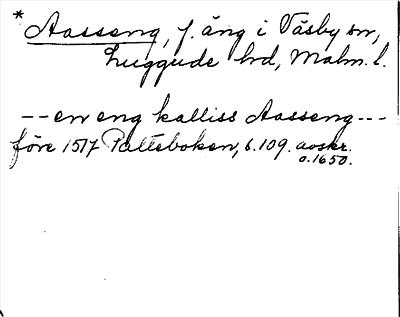 * Aasseng, f. äng i Väsby sn,
Luggude hd, Malm. l.
-- en eng kalliss Aasseng ---
före 1517 Palteboken, s. 109. avskr.
o. 1650.